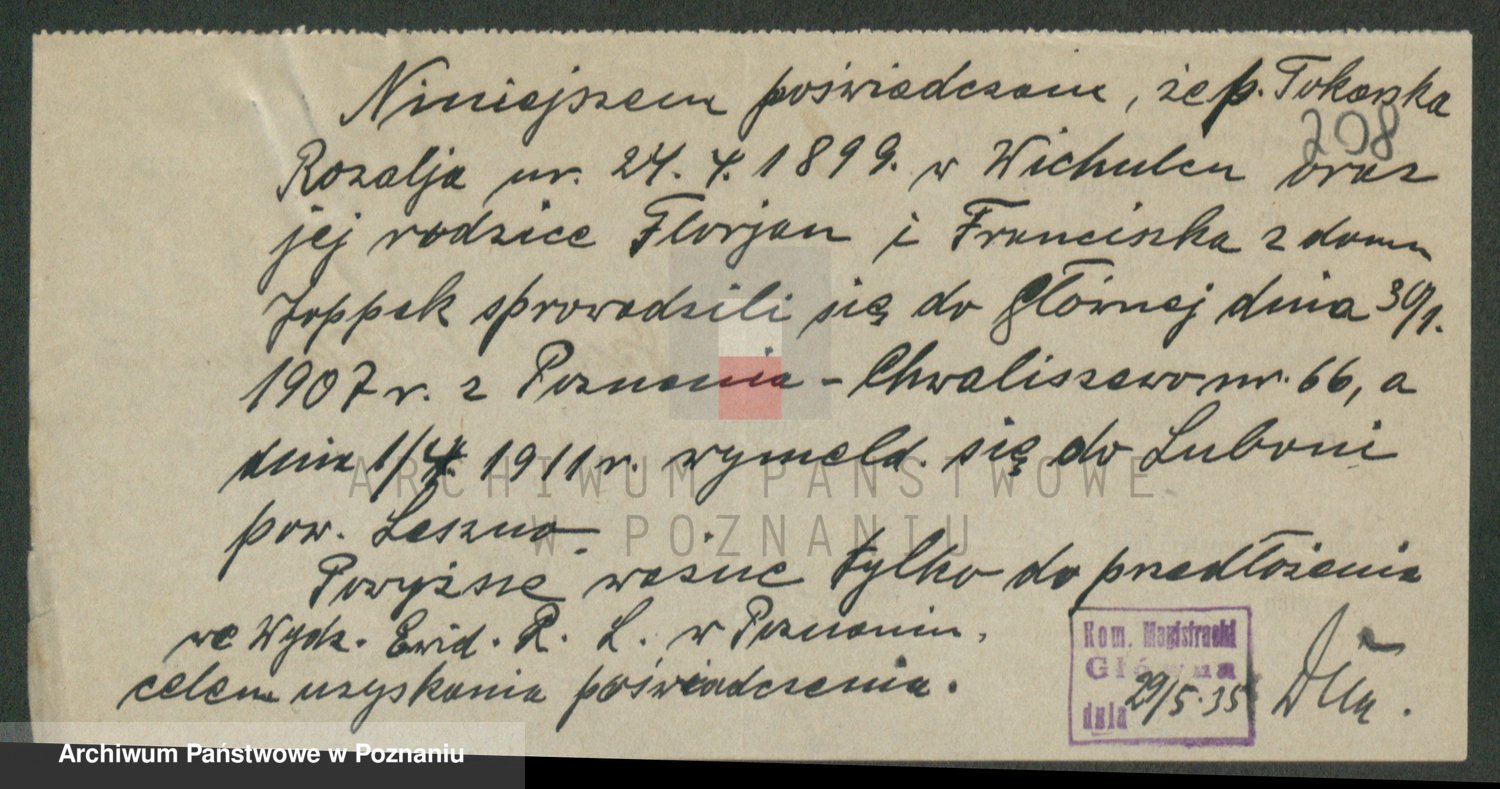 Niniejszem poświadczam, że p. Tokarska
208
Rozalja ur. 24. 4. 1899. w Wichulcu oraz
jej rodzice Florjan i Franciszka z domu
Joppek sprowadzili się do Głównej dnia 30/1.
1907 r. z Poznania - Chwaliszewo nr. 66, a
dnia 1/4. 1911 r. wymeld. się do Luboni
pow. Leszno.
Powyższe ważne tylko do przedłożenia
we Wydz. Ewid. R. L. w Poznaniu,
celem uzyskania poświadczenia.
Kom. Magistracki
Główna
dnia 29/5. 35
ARCHIWUM PAŃSTWOWE
W POZNANIU
Archiwum Państwowe w Poznaniu